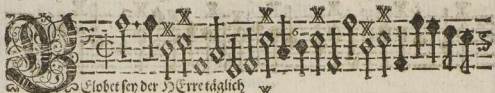 Gelobet sey der HErre täglich